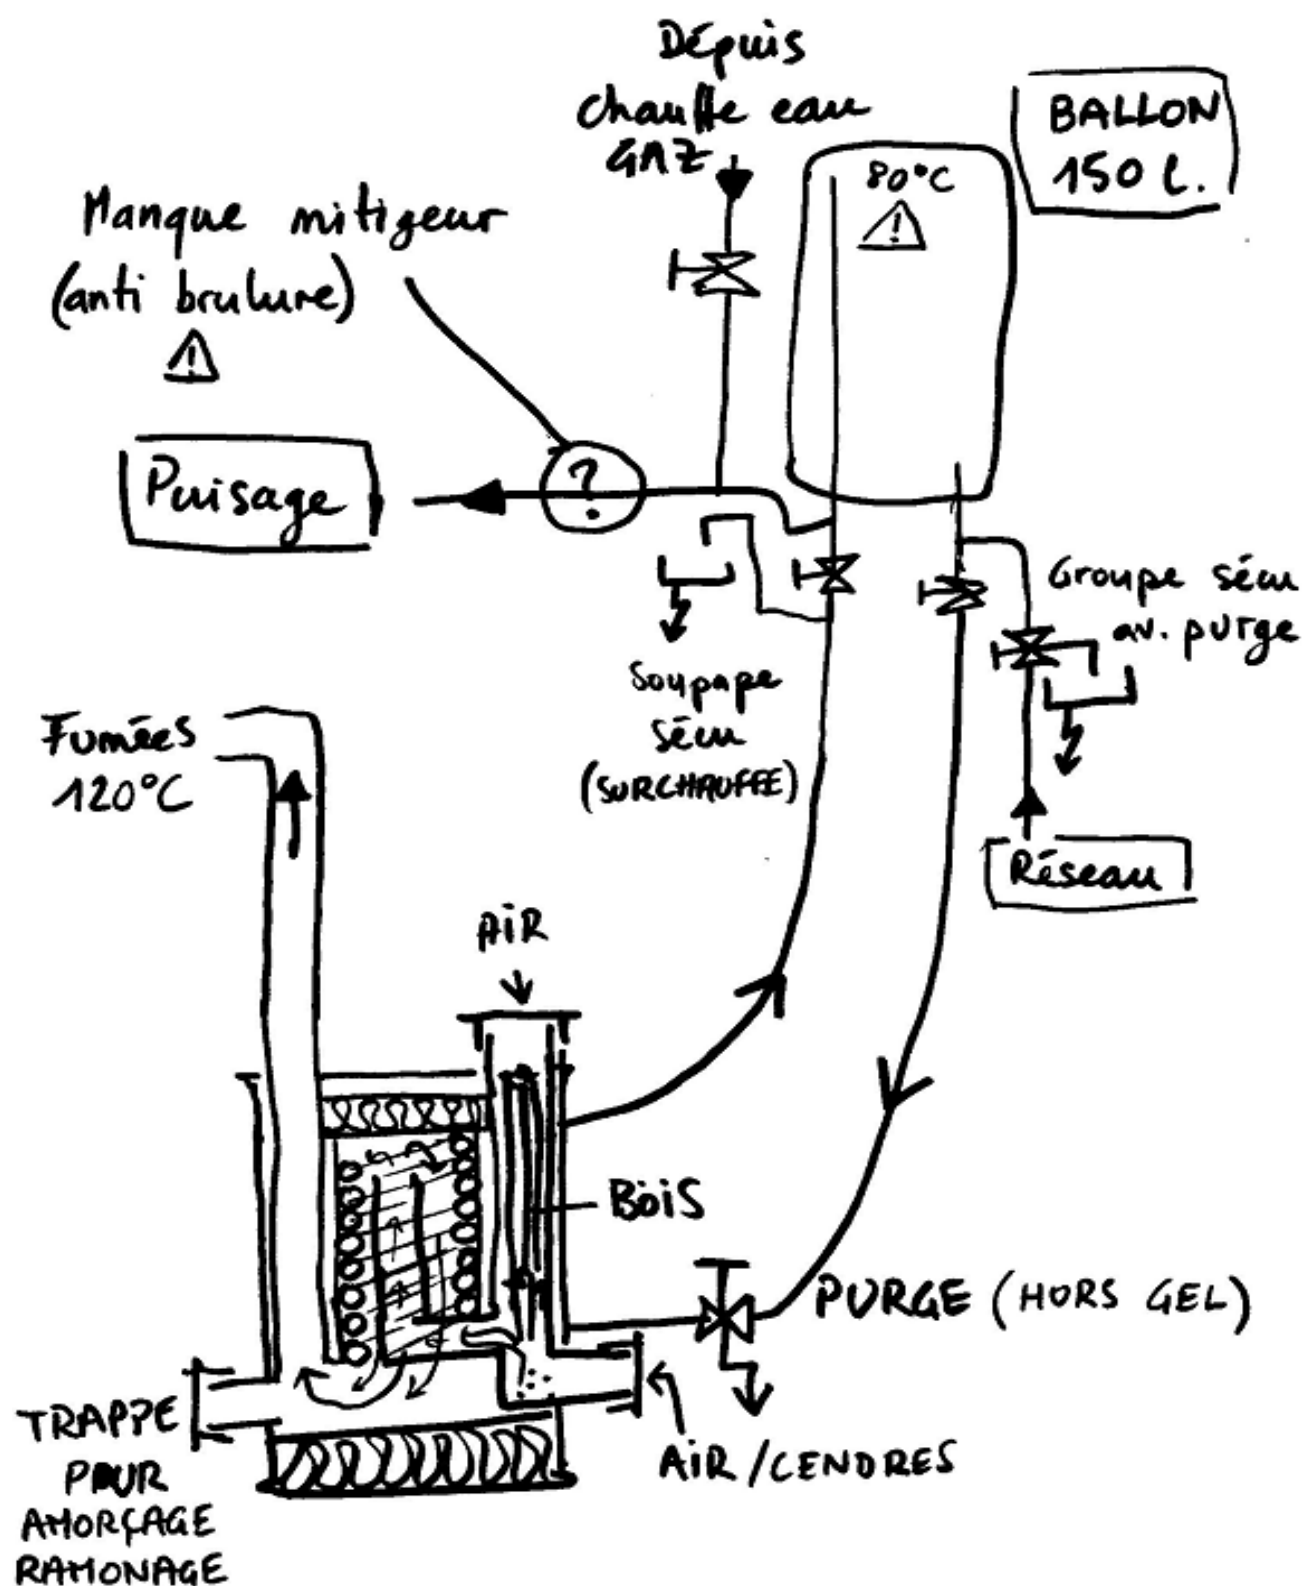 Dépuis
chauffe eau
GAZ
BALLON
150 L.
80°C
Manque mitigeur
(anti brulure)
Puisage
?
Groupe sécu
av. purge
Soupape
sécu
(SURCHAUFFE)
Réseau
Fumées
120°C
AiR
BOiS
PURGE (HORS GEL)
TRAPPE
POUR
AMORÇAGE
RAMONAGE
AiR/CENDRES